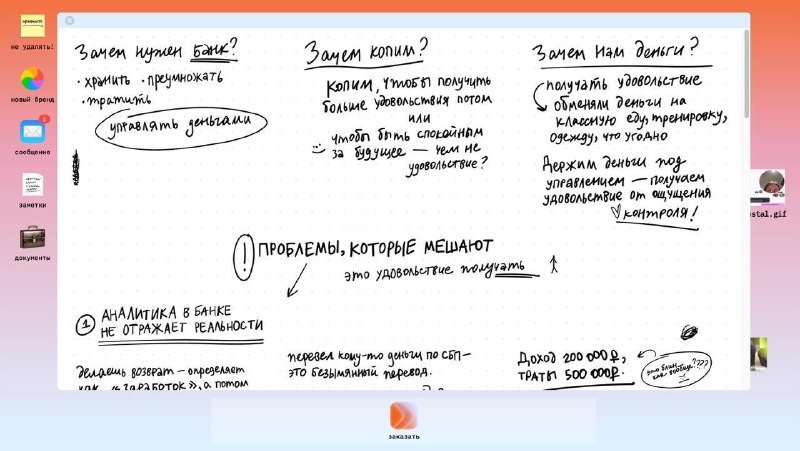 крошите
не удалять!
новый бренд
1
сообщение
заметки
документы
Зачем нужен банк?
• хранить • преумножать
• тратить
управлять деньгами
Зачем копим?
копим, чтобы получить
больше удовольствия потом
или
чтобы быть спокойным
за будущее — чем не
удовольствие?
Зачем нам деньги?
получать удовольствие
обменяли деньги на
классную еду, тренировку,
одежду, что угодно
Держим деньги под
управлением — получаем
удовольствие от ощущения
контроля!
! ПРОБЛЕМЫ, КОТОРЫЕ МЕШАЮТ
это удовольствие получать
1 АНАЛИТИКА В БАНКЕ
НЕ ОТРАЖАЕТ РЕАЛЬНОСТИ
делаешь возврат — определяет
как «заработок», а потом
перевел кому-то деньги по СБП —
это безымянный перевод.
Доход 200 000₽,
траты 500 000₽.
это блин
как вообще????
stal.gif
заказать